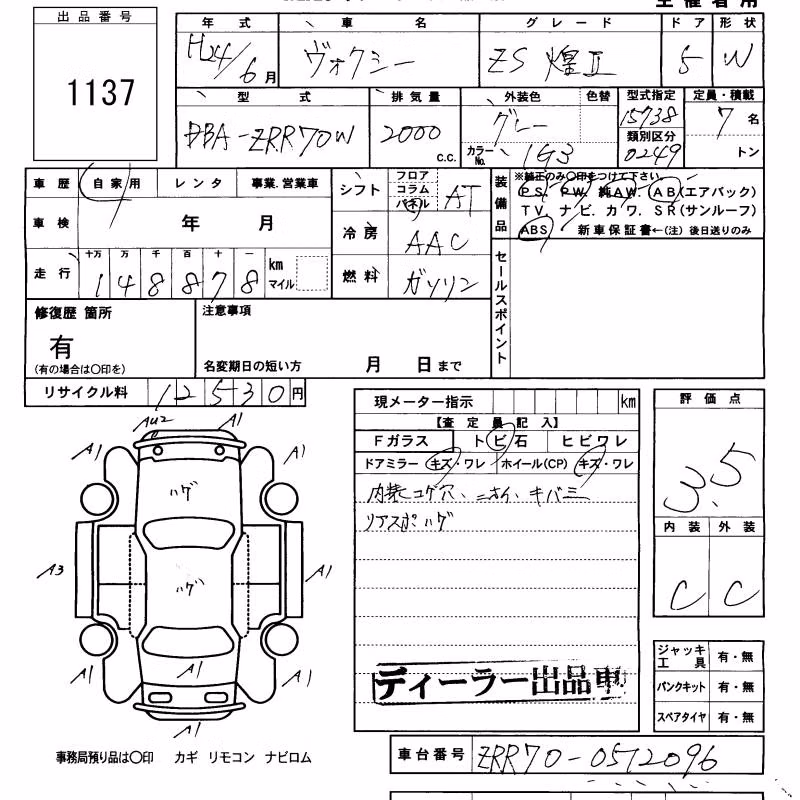 出品番号
1137
年式 車名 グレード ドア 形状
H24/6月 ヴォクシー ZS 煌Ⅱ 5 W
型式 排気量 外装色 色替 型式指定 定員・積載
DBA-ZRR70W 2000 c.c. グレー 15738 7名
カラーNo. 1G3 類別区分 0249 トン
車歴 自家用 レンタ 事業.営業車
シフト フロア コラム パネル AT
装備品 ※純正のみ〇印をつけて下さい。
PS. PW. 純AW. AB(エアバック)
TV. ナビ. カワ. SR(サンルーフ)
ABS 新車保証書←(注) 後日送りのみ
車検 年 月
冷房 AAC
走行 十万 万 千 百 十 一 km マイル
148878
燃料 ガソリン
セールスポイント
修復歴 箇所
有
(有の場合は〇印を)
注意事項
名変期日の短い方 月 日まで
リサイクル料 12530円
現メーター指示 km
【査定員記入】
Fガラス トビ石 ヒビワレ
ドアミラー キズ・ワレ ホイール(CP) キズ・ワレ
内装コゲ穴、ニオイ、キバミ
リアスポハゲ
評価点
3.5
内装 外装
C C
AU2 A1
A1 A1
ハゲ
A3 ハゲ A1
A1 A1 A1
A1
ディーラー出品車
ジャッキ工具 有・無
パンクキット 有・無
スペアタイヤ 有・無
事務局預り品は〇印 カギ リモコン ナビロム
車台番号 ZRR70-0572096